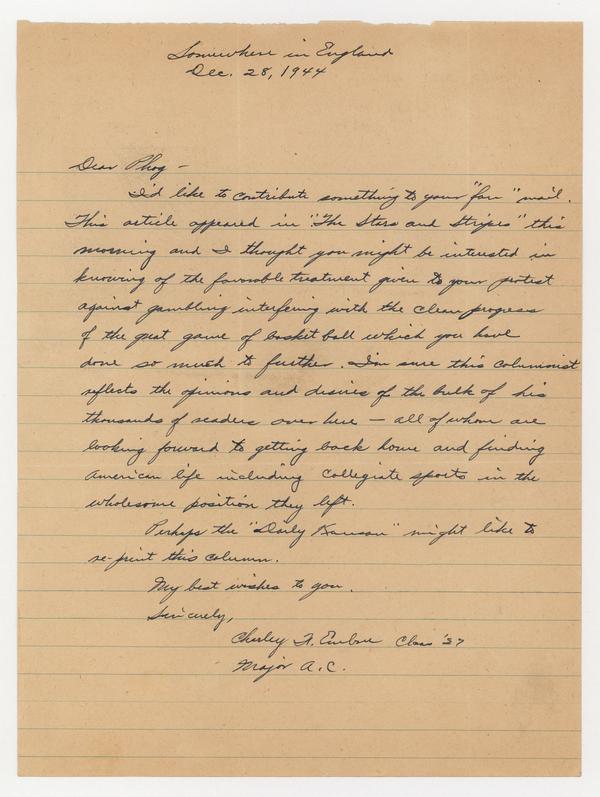 Somewhere in England
Dec. 28, 1944
Dear Phog –
I'd like to contribute something to your "fan" mail.
This article appeared in "The Stars and Stripes" this
morning and I thought you might be interested in
knowing of the favorable treatment given to your protest
against gambling interfering with the clean progress
of the great game of basketball which you have
done so much to further. I'm sure this columnist
reflects the opinions and desires of the bulk of his
thousands of readers over here — all of whom are
looking forward to getting back home and finding
American life including collegiate sports in the
wholesome position they left.
Perhaps the "Daily Kansan" might like to
re-print this column.
My best wishes to you.
Sincerely,
Charley F. Class '37
Major A.C.